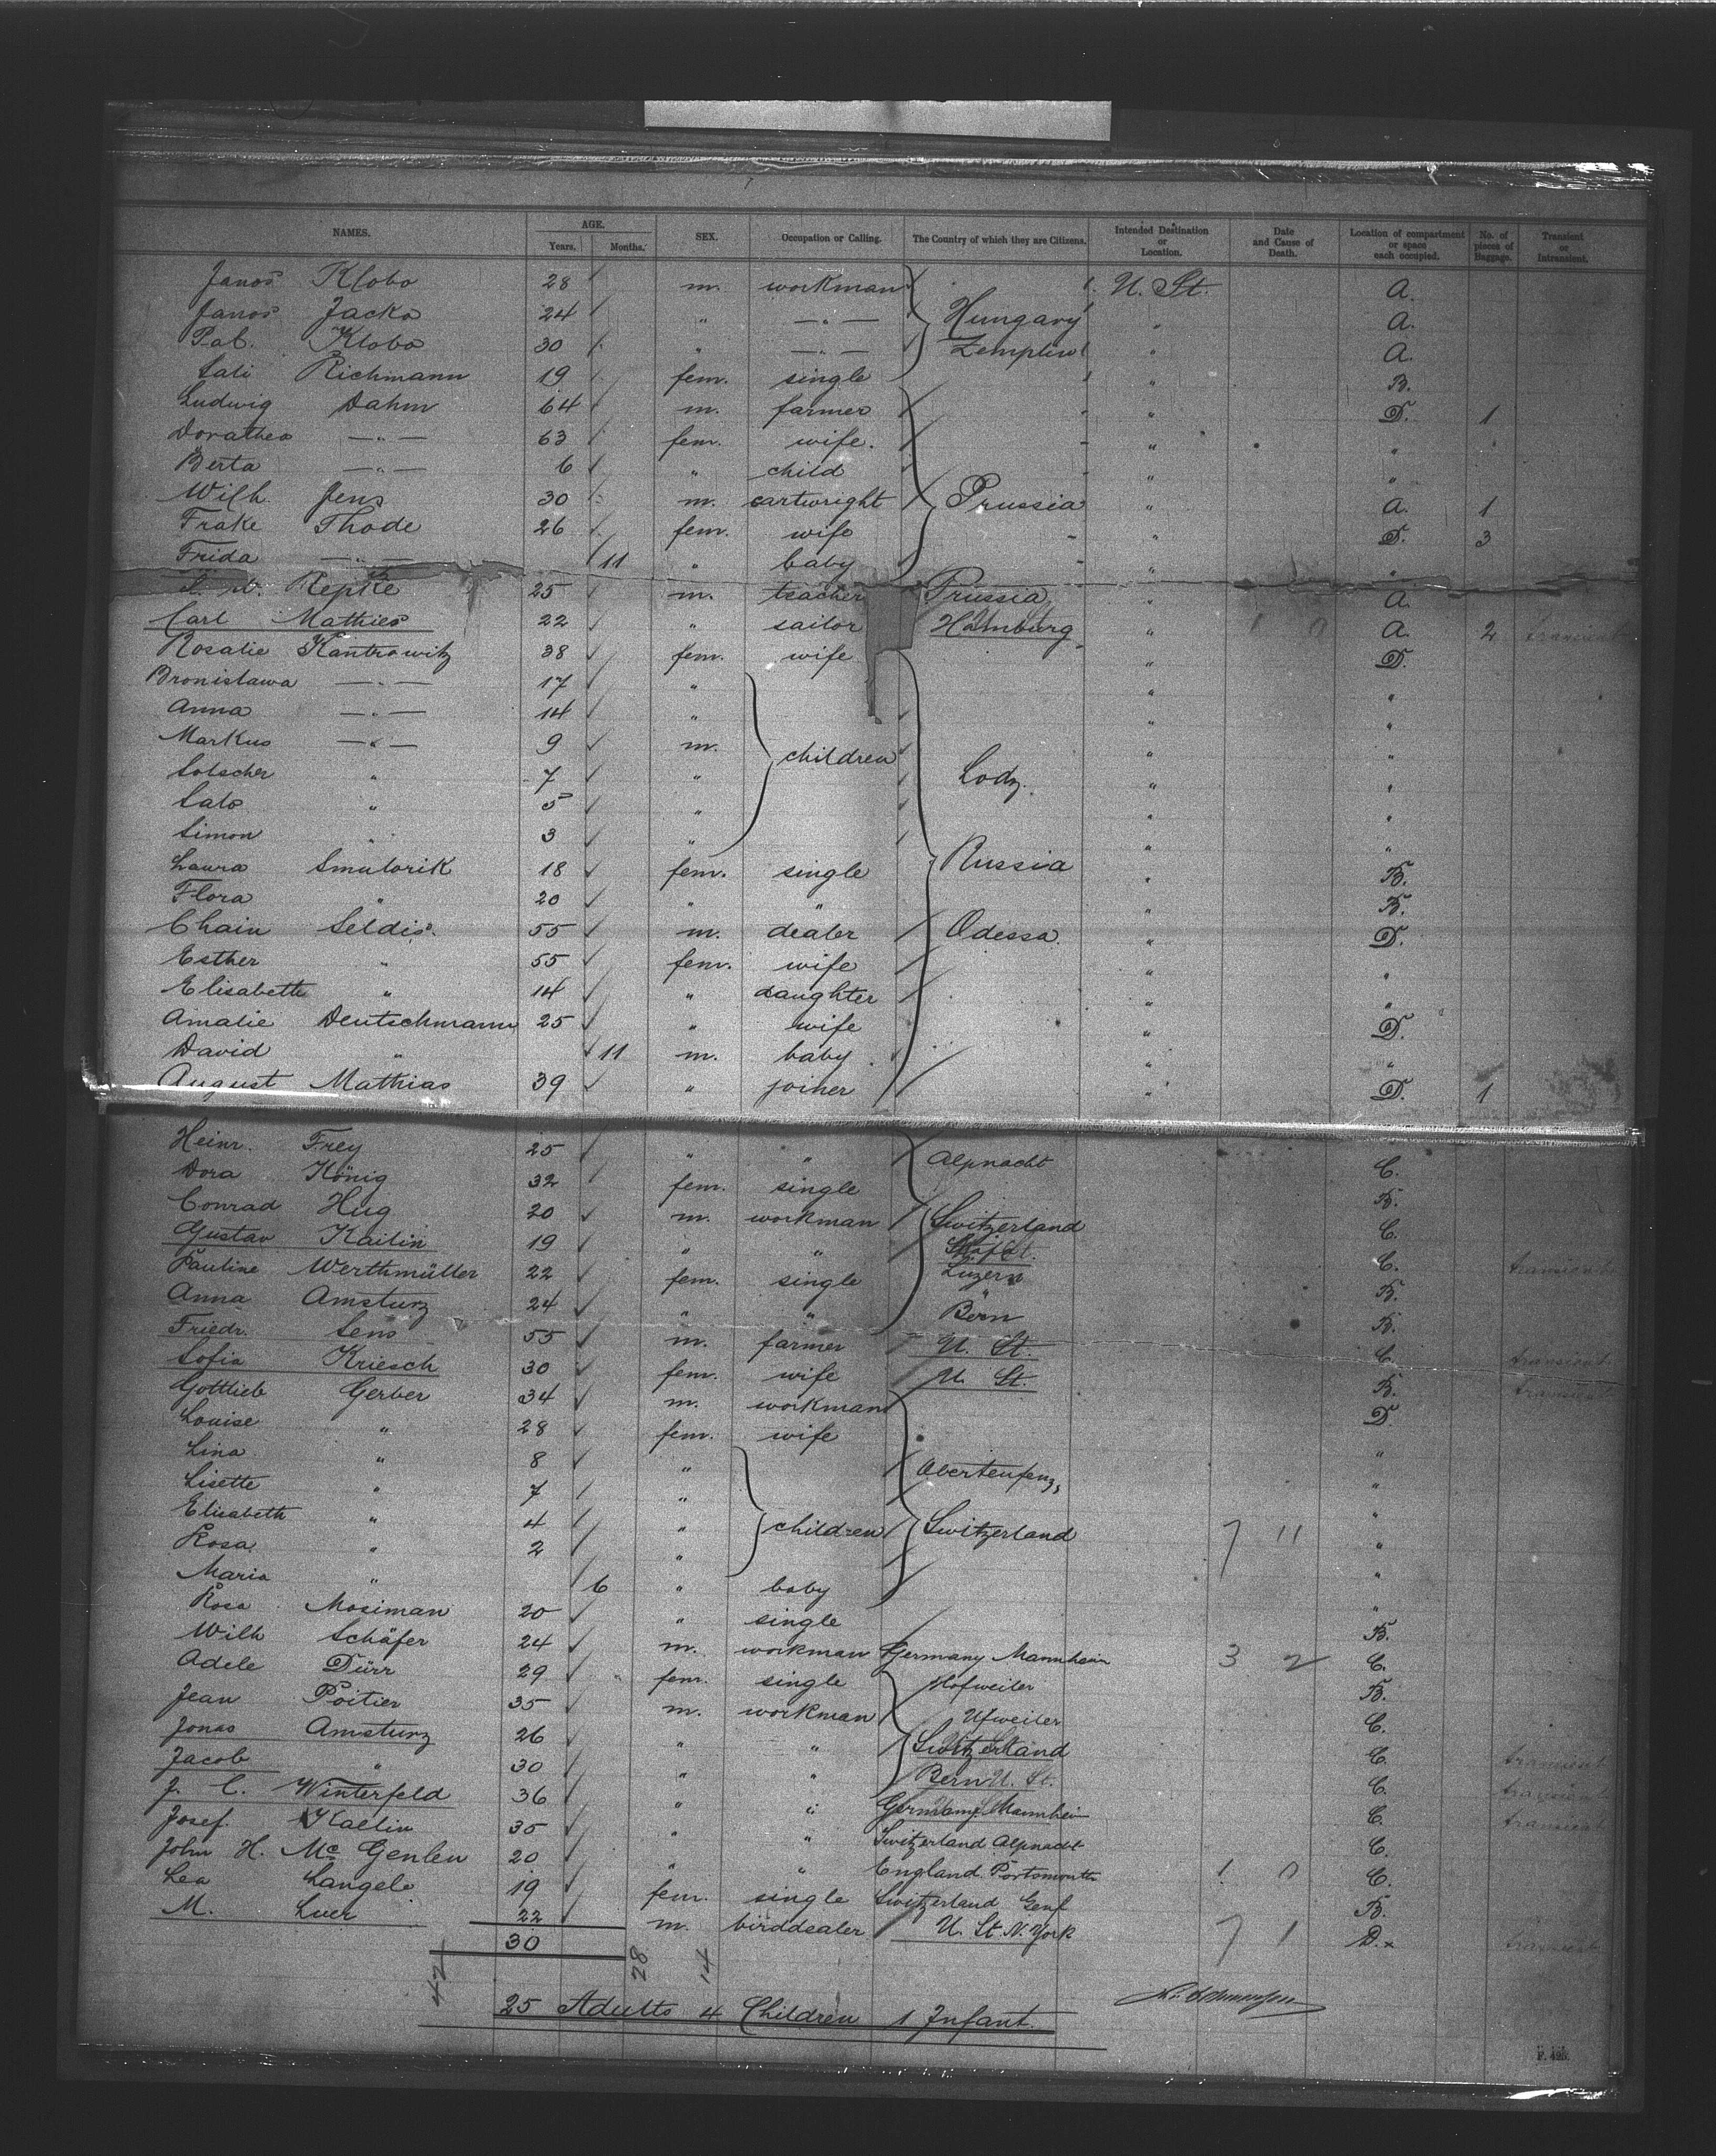 NAMES. AGE. Years. Months. SEX. Occupation or Calling. The Country of which they are Citizens. Intended Destination or Location. Date and Cause of Death. Location of compartment or space each occupied. No. of pieces of Baggage. Transient or Intransient.
Janos Klobo 28 m. workman U. St. A.
Janos Jacko 24 " —"— Hungary " A.
Pal. Klobo 30 " —"— Zemplin " A.
Sali Richmann 19 fem. single " B.
Ludwig Dahm 64 m. farmer " D. 1
Dorathea —"— 63 fem. wife. " "
Berta —"— 6 " child " "
Wilh. Jens 30 m. cartwright Prussia " A. 1
Frake Thode 26 fem. wife " D. 3
Frida —"— 11 " baby " "
Repke 25 m. teacher Prussia " A.
Carl Mathies 22 " sailor Hamburg " A. 2 transient
Rosalie Kantrowitz 38 fem. wife " D.
Bronislawa —"— 17 " " "
Anna —"— 14 " " "
Markus —"— 9 m. children " "
Lolscher " 7 " Lodz. " "
Salo " 5 " " "
Simon " 3 " " "
Laura Smulorik 18 fem. single Russia " B.
Flora " 20 " " " B.
Chain Seldis. 55 m. dealer Odessa. " D.
Esther " 55 fem. wife " "
Elisabeth " 14 " daughter " "
Amalie Deutschmann 25 " wife " D.
David " 11 m. baby " "
August Mathias 39 " joiner " D. 1
Heinr. Frey 25 " " Alpnacht C.
Dora König 32 fem. single B.
Conrad Hug 20 m. workman Switzerland C.
Gustav Kailin 19 " " C. transient
Pauline Werthmüller 22 fem. single Luzern B.
Anna Amsturz 24 " " Bern B.
Friedr. Sens 55 m. farmer U. St. C. transient
Sofia Kriesch 30 fem. wife U. St. B. transient
Gottlieb Gerber 34 m. workman D
Louise " 28 fem. wife "
Lina " 8 " "
Lisette " 7 " Obertenfenz, "
Elisabeth " 4 " children Switzerland 7 11 "
Rosa " 2 " "
Maria " 6 " baby "
Rosa Mosiman 20 " single B.
Wilh Schäfer 24 m. workman Germany Mannheim 3 2 C.
Adele Dürr 29 fem. single Hofweiler B.
Jean Poitier 35 m. workman Ufweiler C.
Jonas Amsturz 26 " " Switzerland C. transient
Jacob " 30 " " Bern U. St. C. transient
J. C. Winterfeld 36 " " Germany Mannheim C. transient
Josef Kallin 35 " " Switzerland Alpnacht C.
John H. Mc Genlen 20 " " England. Portsmouth 1 0 C.
Lea Langele 19 fem. single Switzerland Genf B.
M. Luer 22 m. birddealer U. St. N. York 7 1 D. transient
30
42 28 14
25 Adults 4 Children 1 Infant.
F. 495.